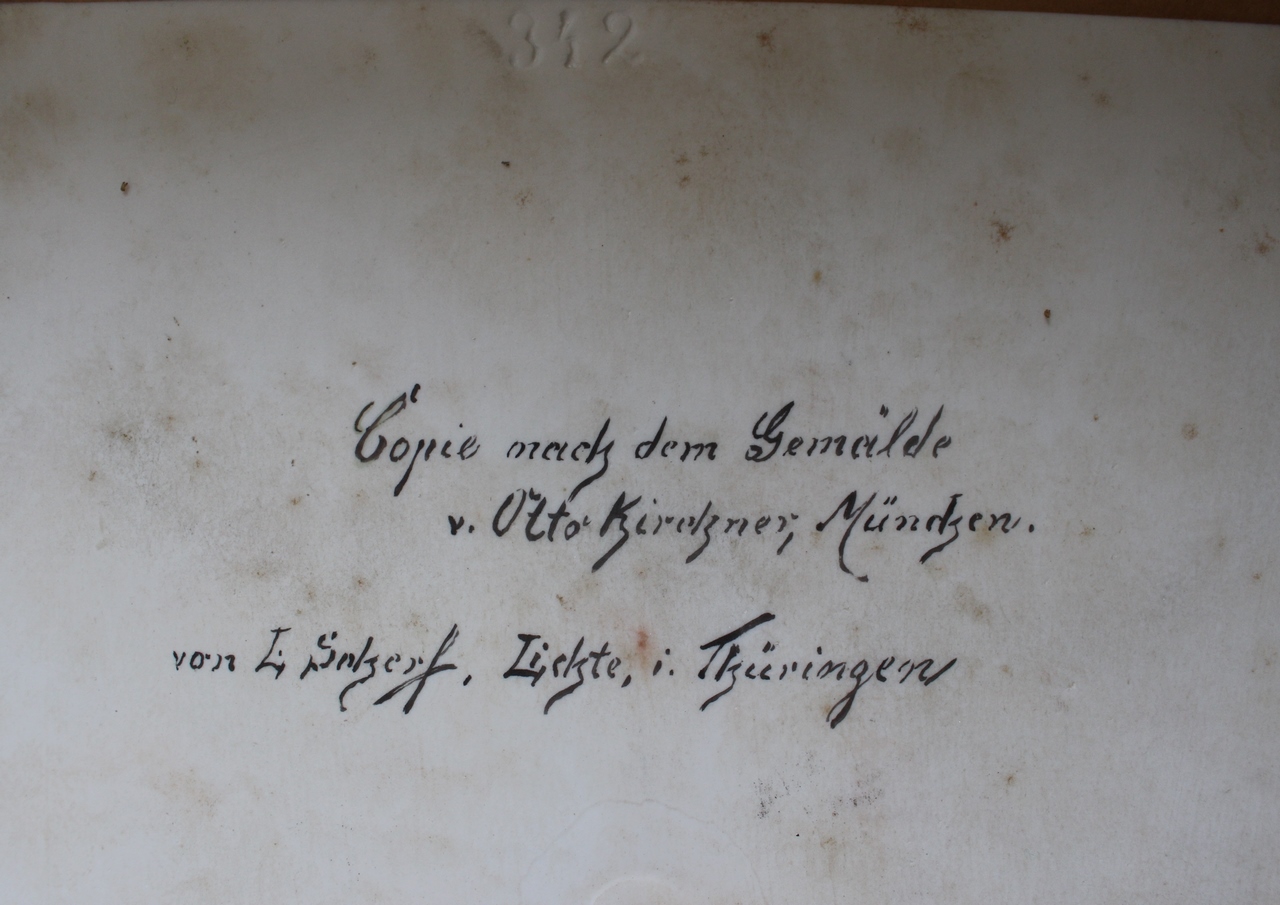 342
Copie nach dem Gemälde
v. Otto Kirchner, München.
von L. Scherf, Lichte, i. Thüringen